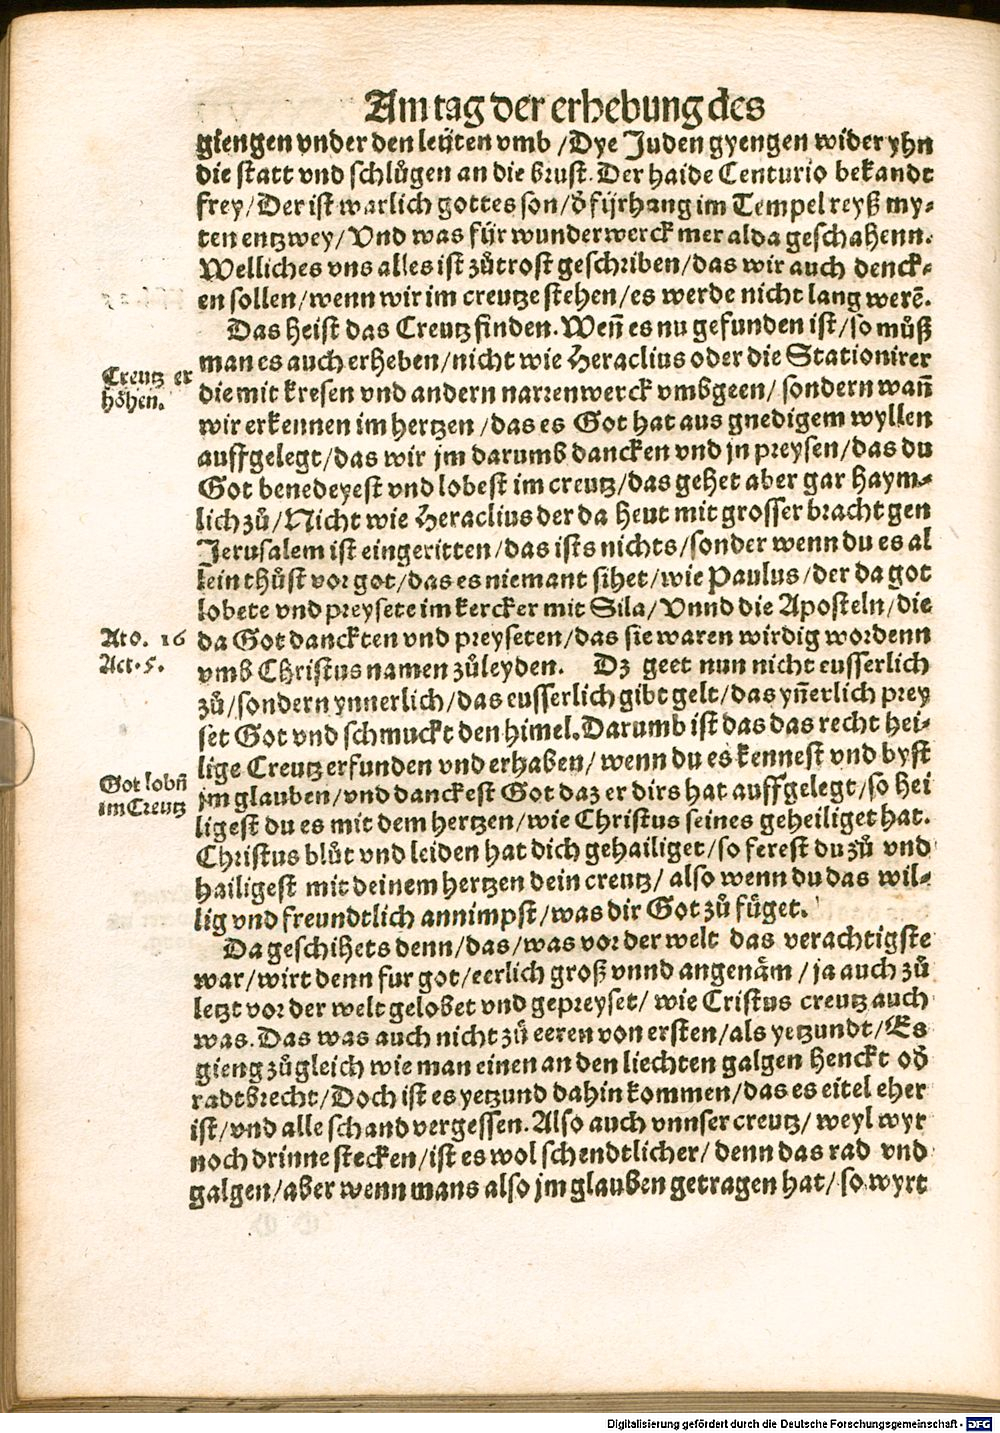 Am tag der erhebung des
giengen vnder den leüten vmb /Dye Juden gyengen wider yhn
die statt vnd schlůgen an die brust. Der haide Centurio bekandt
frey/Der ist warlich gottes son/d̄ fürhang im Tempel reyß my⸗
ten entzwey/Vnd was für wunderwerck mer alda geschahenn.
Welliches vns alles ist zůtrost geschriben/das wir auch denck⸗
en sollen/wenn wir im creutze stehen/es werde nicht lang werē.
Das heist das Creutz finden. Weñ es nu gefunden ist/so můß
man es auch erheben/nicht wie Heraclius oder die Stationirer
die mit kresen vnd andern narrenwerck vmbgeen/ sondern wañ
wir erkennen im hertzen /das es Got hat aus gnedigem wyllen
auffgelegt/das wir jm darumb dancken vnd jn preysen/das du
Got benedeyest vnd lobest im creutz/das gehet aber gar haym⸗
lich zů/Nicht wie Heraclius der da heut mit grosser bracht gen
Jerusalem ist eingeritten/das ists nichts/sonder wenn du es al
lein thůst vor got/das es niemant sihet/wie Paulus/der da got
lobete vnd preysete im kercker mit Sila/Vnnd die Aposteln/die
da Got danckten vnd preyseten/das sie waren wirdig wordenn
vmb Christus namen zůleyden. Dz geet nun nicht eusserlich
zů/sondern ynnerlich/das eusserlich gibt gelt/das yñerlich prey
set Got vnd schmuckt den himel. Darumb ist das das recht hei⸗
lige Creutz erfunden vnd erhaben/ wenn du es kennest vnd byst
jm glauben/vnd danckest Got daz er dirs hat auffgelegt/so hei
ligest du es mit dem hertzen/wie Christus seines geheiliget hat.
Christus blůt vnd leiden hat dich gehailiget/so ferest du zů vnd
hailigest mit deinem hertzen dein creutz/ also wenn du das wil⸗
lig vnd freundtlich annimpst/was dir Got zů füget.
Da geschihets denn/das/was vor der welt das verachtigste
war/wirt denn fur got/eerlich groß vnnd angenäm /ja auch zů
letzt vor der welt gelobet vnd gepreyset/ wie Cristus creutz auch
was. Das was auch nicht zů eeren von ersten/als yetzundt/Es
gieng zůgleich wie man einen an den liechten galgen henckt od̄
radtbrecht/Doch ist es yetzund dahin kommen/das es eitel eher
ist/vnd alle schand vergessen. Also auch vnnser creutz/ weyl wyr
noch drinne stecken/ist es wol schendtlicher/ denn das rad vnd
galgen/aber wenn mans also jm glauben getragen hat/ so wyrt
Creutz er
höhen.
Ato. 16
Act. 5.
Got lobñ
im Creutz
Digitalisierung gefördert durch die Deutsche Forschungsgemeinschaft - DFG